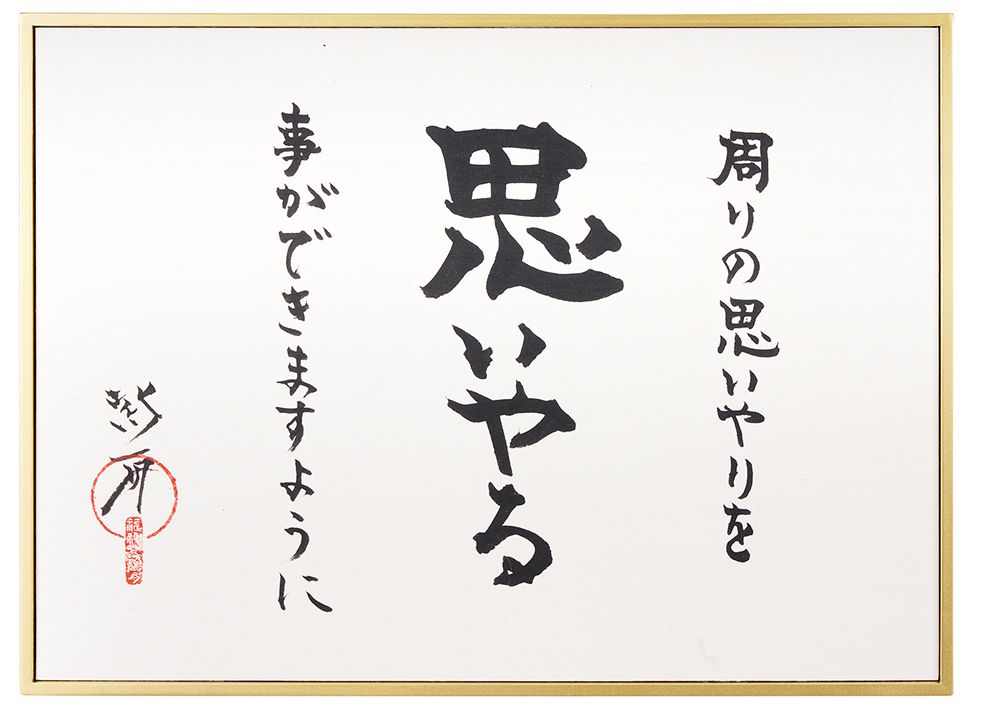 周りの思いやりを
思いやる
事ができますように